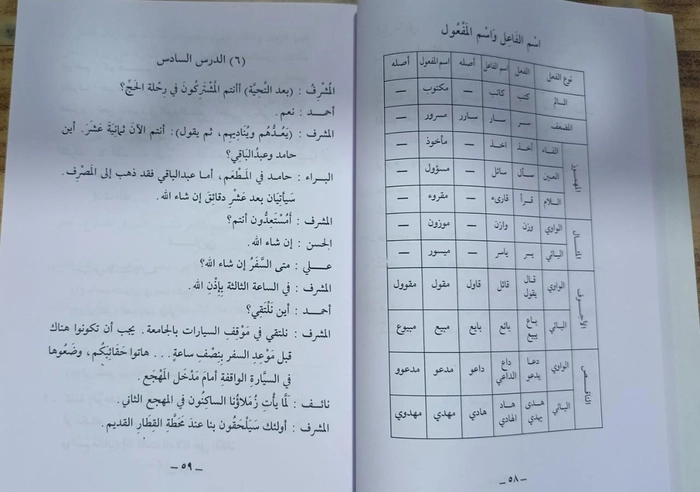 اسْم الفَاعِل وَاسْم المَفْعُول
نوع الفعل الفعل اسم الفاعل أصله اسم المفعول أصله
السالم كتب كاتب — مكتوب —
المضعف سر سار سارر مسرور —
المهموز الفاء أخذ آخذ — مأخوذ —
العين سأل سائل — مسؤول —
اللام قرأ قارىء — مقروء —
المثال الواوي وزن وازن — موزون —
اليائي يسر ياسر — ميسور —
الأجوف الواوي قال يقول قائل قاول مقول مقوول
اليائي باع يبيع بائع بايع مبيع مبيوع
الناقص الواوي دعا يدعو داع الداعي داعو مدعو مدعوو
اليائي هدى يهدي هاد الهادي هادي مهدي مهدوي
— ٥٨ —
(٦) الدرس السادس
المُشْرِفُ : (بعد التحِيَّة) أأنتم المُشْتَرِكُونَ في رِحْلة الحَجِّ؟
أحمـد : نعم.
المشرف : (يَعُدُّهُم ويُنَادِيهِم، ثم يقول): أنتم الآنَ ثمانِيَةَ عَشَرَ. أين
حامد وعبدُالبَاقِي؟
البـراء : حامد في المَطْعَم، أما عبدالباقي فقد ذهب إلى المَصْرِف.
سَيَأتِيَان بعد عَشْرِ دقائِقَ إن شاء الله.
المشرف : أَمُسْتَعِدُّون أنتم؟
الحسن : إن شاء الله.
عـلـي : متى السَّفَرُ إن شاء الله؟
المشرف : في الساعة الثالثة بإِذْنِ الله.
أحمد : أين نَلْتَقِي؟
المشرف : نلتقي في مَوْقِفِ السيارات بالجامعة. يجب أن تكونوا هناك
قبل مَوْعِدِ السفر بِنِصْفِ ساعةٍ... هاتوا حَقَائِبَكُم، وضَعُوها
في السيَّارة الواقفة أمامَ مَدْخَل المَهْجَع.
نائـف : لَمَّا يأْتِ زُمَلاؤُنا الساكِنُون في المهجع الثاني.
المشرف : أولئك سَيَلْحَقُون بنا عندَ مَحَطَّةِ القِطَارِ القديم.
— ٥٩ —